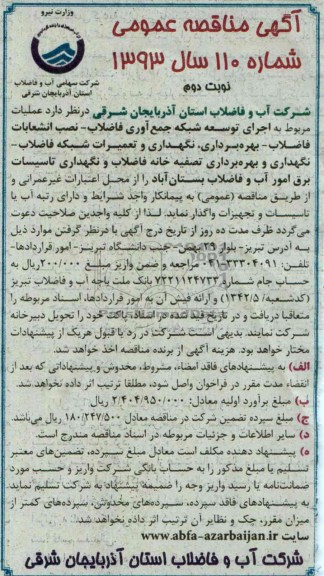 وزارت نیرو
شرکت سهامی آب و فاضلاب
استان آذربایجان شرقی
آگهی مناقصه عمومی
شماره ۱۱۰ سال ۱۳۹۳
نوبت دوم
شرکت آب و فاضلاب استان آذربایجان شرقی درنظر دارد عملیات
مربوط به اجرای توسعه شبکه جمع‌آوری فاضلاب- نصب انشعابات
فاضلاب- بهره‌برداری، نگهداری و تعمیرات شبکه فاضلاب-
نگهداری و بهره‌برداری تصفیه خانه فاضلاب و نگهداری تاسیسات
برق امور آب و فاضلاب بستان‌آباد را از محل اعتبارات غیرعمرانی و
از طریق مناقصه (عمومی) به پیمانکار واجد شرایط و دارای رتبه آب یا
تاسیسات و تجهیزات واگذار نماید. لذا از کلیه واجدین صلاحیت دعوت
می‌گردد ظرف مدت ده روز از تاریخ درج آگهی با درنظر گرفتن موارد ذیل
به آدرس تبریز- بلوار ۲۹ بهمن- جنب دانشگاه تبریز- امور قراردادها-
تلفن: ۰۴۱-۳۳۳۰۴۰۹۱ مراجعه و ضمن واریز مبلغ ۲۰۰/۰۰۰ ریال به
حساب جام شماره ۷۲۲۱۱۲۴۷۳۲ بانک ملت باجه آب و فاضلاب تبریز
(کدشعبه: ۱۳۴۲/۵) و ارائه فیش آن به امور قراردادها، اسناد مربوطه را
متعاقبا دریافت و در تاریخ قید شده در اسناد، پاکت خود را تحویل دبیرخانه
شرکت نمایند. بدیهی است شرکت در رد یا قبول هریک از پیشنهادات
مختار خواهد بود. هزینه آگهی از برنده مناقصه اخذ خواهد شد.
الف) به پیشنهادهای فاقد امضاء، مشروط، مخدوش و پیشنهاداتی که بعد از
انقضاء مدت مقرر در فراخوان واصل شود، مطلقا ترتیب اثر داده نخواهد شد.
ب) مبلغ برآورد اولیه معادل: ۲/۴۰۴/۹۵۰/۰۰۰ ریال
ج) مبلغ سپرده تضمین شرکت در مناقصه معادل ۱۸۰/۲۴۷/۵۰۰ ریال می‌باشد.
د) سایر اطلاعات و جزئیات مربوطه در اسناد مناقصه مندرج است.
ه) پیشنهاد دهنده مکلف است معادل مبلغ سپرده، تضمین‌های معتبر
تسلیم یا مبلغ مذکور را به حساب بانکی شرکت واریز و حسب مورد
ضمانت‌نامه یا رسید واریز وجه را ضمیمه پیشنهاد به شرکت تسلیم نماید
به پیشنهادهای فاقد سپرده، سپرده‌های مخدوش، سپرده‌های کمتر از
میزان مقرر، چک و نظایر آن ترتیب اثر داده نخواهد شد.
سایت www.abfa-azarbaijan.ir
شرکت آب و فاضلاب استان آذربایجان شرقی